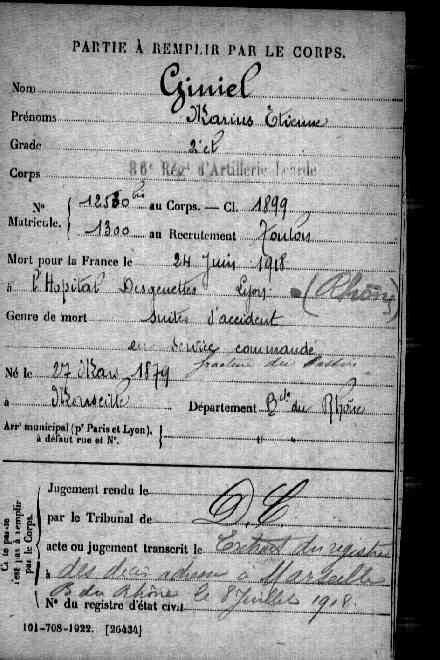 PARTIE À REMPLIR PAR LE CORPS.
Nom Giniel
Prénoms Marius Etienne
Grade 2e ct
Corps 86e Régt d'Artillerie Lourde
Nº 12580 bis au Corps. — Cl. 1899
Matricule. 1300 au Recrutement Toulon
Mort pour la France le 24 Juin 1918
à l'Hopital Desgenettes Lyon (Rhône)
Genre de mort suites d'accident
en service commandé
fracture du bassin
Né le 27 Mars 1879
à Marseille Département Bches du Rhône
Arrt municipal (pr Paris et Lyon), à défaut rue et Nº.
Jugement rendu le
par le Tribunal de D. C.
acte ou jugement transcrit le Extrait du registre
à des décès adressé à Marseille
B du Rhône le 8 Juillet 1918.
Nº du registre d'état civil
Ce te partie n'est pas à remplir par le Corps.
101-708-1922. [26434]